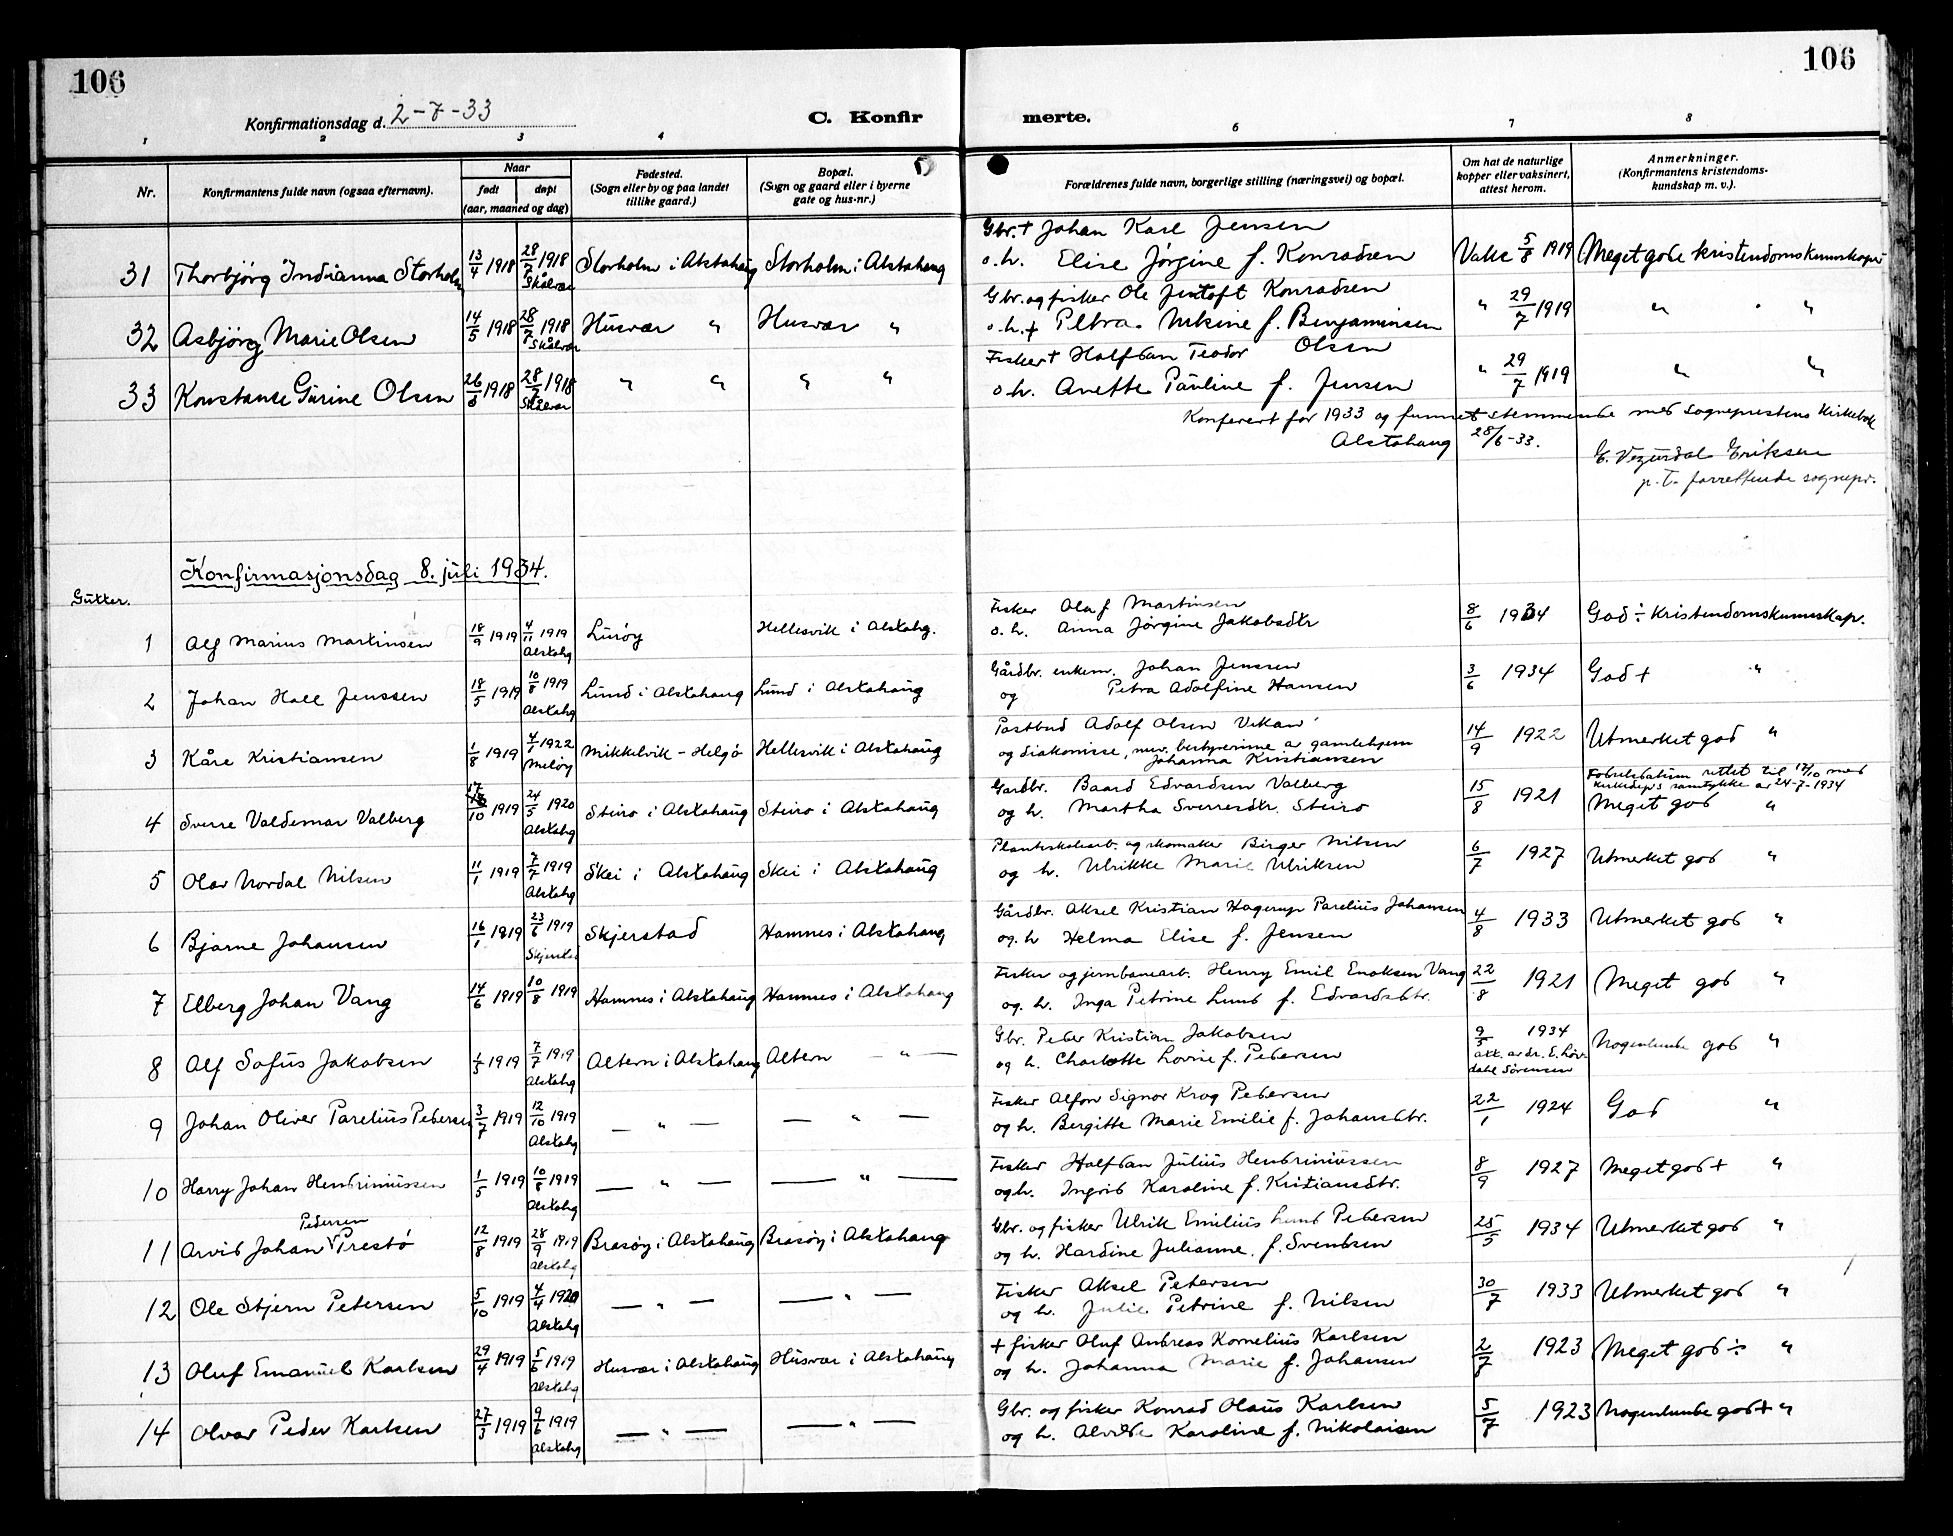 106
106
Konfirmationsdag d. 2-7-33
C. Konfir
merte.
1 2 3 4 6 7 8
Nr.
Konfirmantens fulde navn (ogsaa efternavn).
Naar
født
døpt
(aar, maaned og dag)
Fødested.
(Sogn eller by og paa landet
tillike gaard.)
Bopæl.
(Sogn og gaard eller i byerne
gate og hus-nr.)
Forældrenes fulde navn, borgerlige stilling (næringsvei) og bopæl.
Om hat de naturlige
kopper eller vaksinert,
attest herom.
Anmerkninger.
(Konfirmantens kristendoms-
kundskap m. v.).
31 Thorbjørg Indianna Storholm 13/4 1918 28/7 1918 Skålvær Storholm i Alstahaug Storholm i Alstahaug
Gbr. + Johan Karl Jensen
o. h. Elise Jørgine f. Konradsen Vakc 5/8 1919 Meget gode kristendomskunnskaper
32 Asbjørg Marie Olsen 14/5 1918 28/7 1918 Skålvær Husvær " Husvær "
Gbr. og fisker Ole Jentoft Konradsen
o. h. + Petra Nikine f. Benjaminsen " 29/7 1919 " " "
33 Konstanse Gurine Olsen 26/6 1918 28/7 1918 Skålvær " " " "
Fisker + Halfdan Teodor Olsen
o. h. Anette Pauline f. Jensen " 29/7 1919 " "
Konferert for 1933 og funnet stemmende med sogneprestens kirkebok
Alstahaug 28/6-33.
E. Eriksen
p. t. forrettende sognepr.
Konfirmasjonsdag 8. juli 1934.
Gutter.
1 Alf Marius Martinsen 18/9 1919 4/11 1919 Alstahg Lurøy Hellesvik i Alstahg.
Fisker Olaf Martinsen
o. h. Anna Jørgine Jakobsdtr 8/6 1934 God ÷ kristendomskunnskap.
2 Johan Hall Jenssen 18/5 1919 10/8 1919 Alstahg Lund i Alstahaug Lund i Alstahaug
Gårdbr. enkem. Johan Jenssen
og Petra Adolfine Hansen 3/6 1934 God + "
3 Kåre Kristiansen 1/8 1919 4/1 1922 Meløy Mikkelvik - Helgø Hellesvik i Alstahaug
Postbud Adolf Olsen Vikan
og diakonisse, nuv. bestyrerinne av gamlehjem
Johanna Kristiansen 14/9 1922 Utmerket god "
4 Sverre Valdemar Valberg 17/10 1919 24/5 1920 Alstahg Steiro i Alstahaug Steiro i Alstahaug
Gardbr. Baard Edvardsen Valberg
og h. Martha Sverresdtr. Steiro 15/8 1921 Fødselsdatum rettet til 17/10 med
Kirkedep's samtykke av 24-7-1934
Meget god "
5 Olav Nordal Nilsen 11/1 1919 7/7 1919 Alstahg Skei i Alstahaug Skei i Alstahaug
Planteskolearb. og skomaker Birger Nilsen
og h. Ulrikke Marie Ulriksen 6/7 1927 Utmerket god "
6 Bjarne Johansen 16/1 1919 23/6 1919 Skjerstad Hamnes i Alstahaug
Gårdbr. Aksel Kristian Hagerup Parelius Johansen
og. h Helma Elise f. Jensen 4/8 1933 Utmerket god "
7 Elberg Johan Vang 14/6 1919 10/8 1919 Hamnes i Alstahaug Hamnes i Alstahaug
Fisker og jernbanearb. Henry Emil Enoksen Vang
og. h. Inga Petrine Lund f. Edvardsdtr. 22/8 1921 Meget god "
8 Alf Sofus Jakobsen 1/5 1919 7/7 1919 Alstahg Altern i Alstahaug Altern — " —
Gbr. Peder Kristian Jakobsen
og h. Charlotte Lovise f. Pedersen 9/5 1934
att. av dr. E. Løv-
dahl Sørensen Nogenlunde god "
9 Johan Oliver Parelius Pedersen 3/7 1919 12/10 1919 Alstahg — " — — " —
Fisker Alfon Signor Krog Pedersen
og h. Bergitte Marie Emilie f. Johansdtr. 22/1 1924 God "
10 Harry Johan Hendriniussen 1/5 1919 10/8 1919 Alstahg — " — — " —
Fisker Halfdan Julius Hendriniussen
og h. Ingrid Karoline f. Kristiansdtr. 8/9 1927 Meget god + "
Pedersen
11 Arvid Johan Prestø 12/8 1919 28/9 1919 Alstahg Brasøy i Alstahaug Brasøy i Alstahaug
Gbr. og fisker Ulrik Emilius Lund Pedersen
og h. Hardine Julianne f. Svendsen 25/5 1934 Utmerket god "
12 Ole Stjern Petersen 5/10 1919 4/4 1920 Alstahg — " — — " —
Fisker Aksel Petersen
og h. Julie Petrine f. Nilsen 30/7 1933 Utmerket god "
13 Oluf Emanuel Karlsen 29/4 1919 5/6 1919 Alstahg Husvær i Alstahaug Husvær i Alstahaug
+ fisker Oluf Andreas Kornelius Karlsen
og h. Johanna Marie f. Johansen 2/8 1923 Meget god ÷ "
14 Olvar Peder Karlsen 27/3 1919 9/6 1919 Alstahg — " — — " —
Gbr. og fisker Konrad Olaus Karlsen
og h. Alvilde Karoline f. Nikolaisen 5/7 1923 Nogenlunde god + "